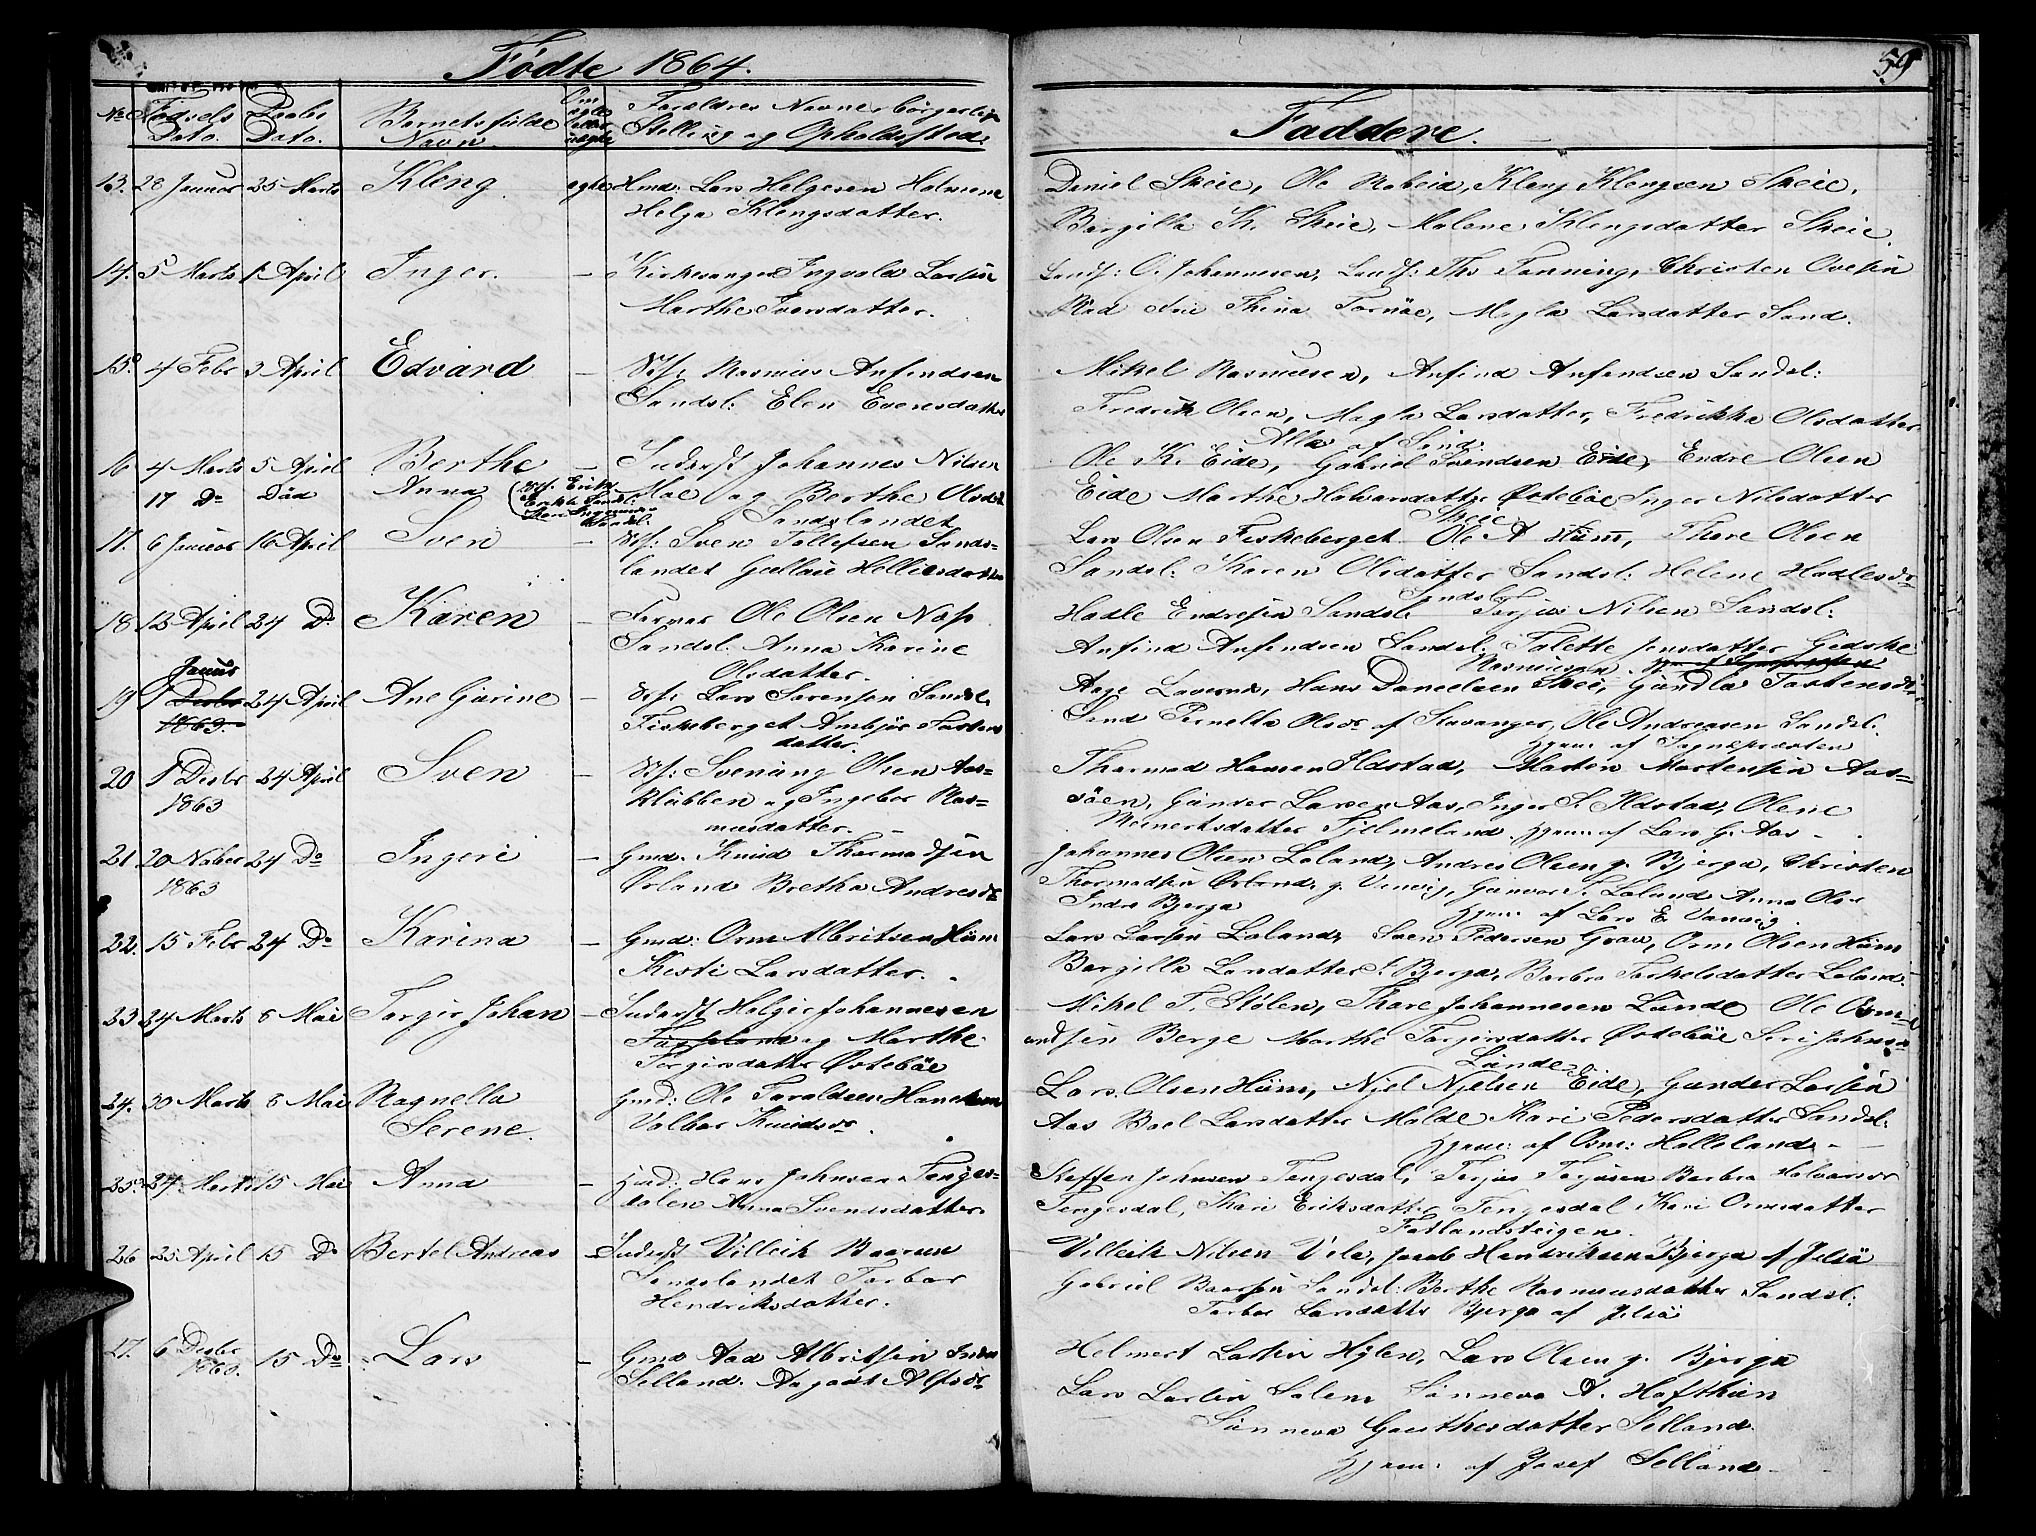 Fødte 1864.
59
No Fødsels Dato. Daabs Dato. Barnets fulde Navn. Om ægte eller uægte Foreldres Navne borgerlige Stilling og Opholdssted.
Faddere.
13. 28 Januar 25 Marts Kleng ægte Hmd: Lars Helgesen
Helga Klengsdatter.
Daniel Skeie, Ole Kleng Klengsen Skeie,
Bergille K. Skeie, Malene Klengsdatter Skeie.
14. 5 Marts 1 April Inger. — Kirkesanger Ingvald Larsen
Marthe Iversdatter.
Landh: O. Johannesen, Landh: Ths Fanning, Christen Ovesen
Thina Tornöe, Magla Larsdatter Sand.
15. 4 Febr 3 April Edvard — Hsf: Rasmus Anfindsen
Sandsl: Elen Eversdatter
Mikel Rasmusen, Anfind Anfendsen Sandsl:
Fredrik Olsen, Magla Larsdatter, Fredrikka Olsdatter
Alle af Sand.
16 4 Marts 5 April Berthe — Inderst Johannes Nilsen
17 Do Död Anna Moe og Berthe Olsdr
Sandslandet
Ole K. Eide, Gabriel Svendsen Eide, Endre Olsen
Eide Marthe Halvorsdatter Østeböe Inger Nilsdatter
Skeie
17. 6 Januar 16 April Sven — Hsf: Sven Tollefsen Sands=
landet Hellesdatter
Lars Olsen Fiskeberget Ole A Hüm, Thore Olsen
Sandsl: Karen Olsdatter Sandsl: Helene Hadlesdr
Sandsl
18. 12 April 24 Do Karen — Ole Olsen
Sandsl. Anna Karine
Olsdatter.
Hadle Endresen Sandsl. Terjus Nilsen Sandsl:
Anfind Anfendsen Sandsl. Talette Jensdatter
Januar
19 1 Desbr 1863. 24 April Ane Gurine — Hsf: Lars Sørensen Sandsl.
Fiskeberget
datter.
Rasmusen
Hans Danielsen Skei, Gundla
Sand Pernella Olsdr af Stavanger, Ole Andreasen Sandsl.
20 1 Desbr 1863 24 April Sven — Hsf: Svenung Olsen Aas=
klubben og Ingebor Ras=
musdatter. —
Thormod Hansen Ilstad, Morten Mortensen Aas=
Gunder Larsen Aas, Inger S. Ilstad, Olene
Meinertsdatter Hjelmeland. Hjem: af Lars G. Aas —
21 20 Nober 1863 24 Do Ingeri — Gmd. Knud Thormodsen
Ørland Bretha Andresdr
Johannes Olsen Loland, Andres Olsen g. Bjerga, Christen
Thormodsen Ørland, g. Vanvig, Gunvor T. Loland Anna Olsdr
Indre Bjerga Hjem: af Lars E. Vanvig.
22. 15 Febr 24 Do Karina — Gmd: Orm Albritsen Hüm
Kesti Larsdatter.
Lars Larsen Loland, Sven Pedersen Orm Olsen Hüm
Bergilla Larsdatter Bjerga, Barbro Torkelsdatter Loland.
23. 24 Marts 8 Mai Torgir Johan — Inderst Holgir Johannesen
og Marthe
Torgirsdatter Østeböe
Mikel T. Stølen, Thore Johannesen Lunde Ole Osm=
undsen Berge Marthe Torgirsdatter Østeböe Siri Johns
Lunde
24. 30 Marts 8 Mai Ragnella
Serene. — Gmd: Ole Taraldsen
Valbor Knudsdr.
Lars Olsen Hüm, Niel Njelsen Eide, Gunder Larsen
Aas Boel Larsdatter Molde Kari Pedersdatter Sandsl:
Hjem: af Osm: Halleland —
25. 27 Marts 15 Mai Anna — Hmd: Hans Johnsen Tenges=
dalen Anna Svensdatter.
Steffen Johnsen Tengesdal, Terjus Terjusen Barbra Halvorsdr
Tengesdal, Kari Eriksdatter Tengesdal Kari Ormsdatter
Fatlandsteigen.
26 25 April 15 Do Bertel Andreas — Inderst Villeik
Sandslandet Torbor
Hendriksdatter.
Villeik Nilsen Vela, Jacob Hendriksen Bjerga af Jelsö
Gabriel Sandsl: Berthe Rasmusdatter Sandsl:
Torbor Larsdatter Bjerga af Jelsö
27. 6 Desbr 1863. 15 Do Lars — Gmd Aad Albritsen Indre
Selland. Aagaat Alfsdr
Helmert Larsen Hylen, Lars Olsen g. Bjerga
Lars Larsen Solem Sünneva A. Hofthun
Sünneva Selland.
Hjem: af Josef Selland —